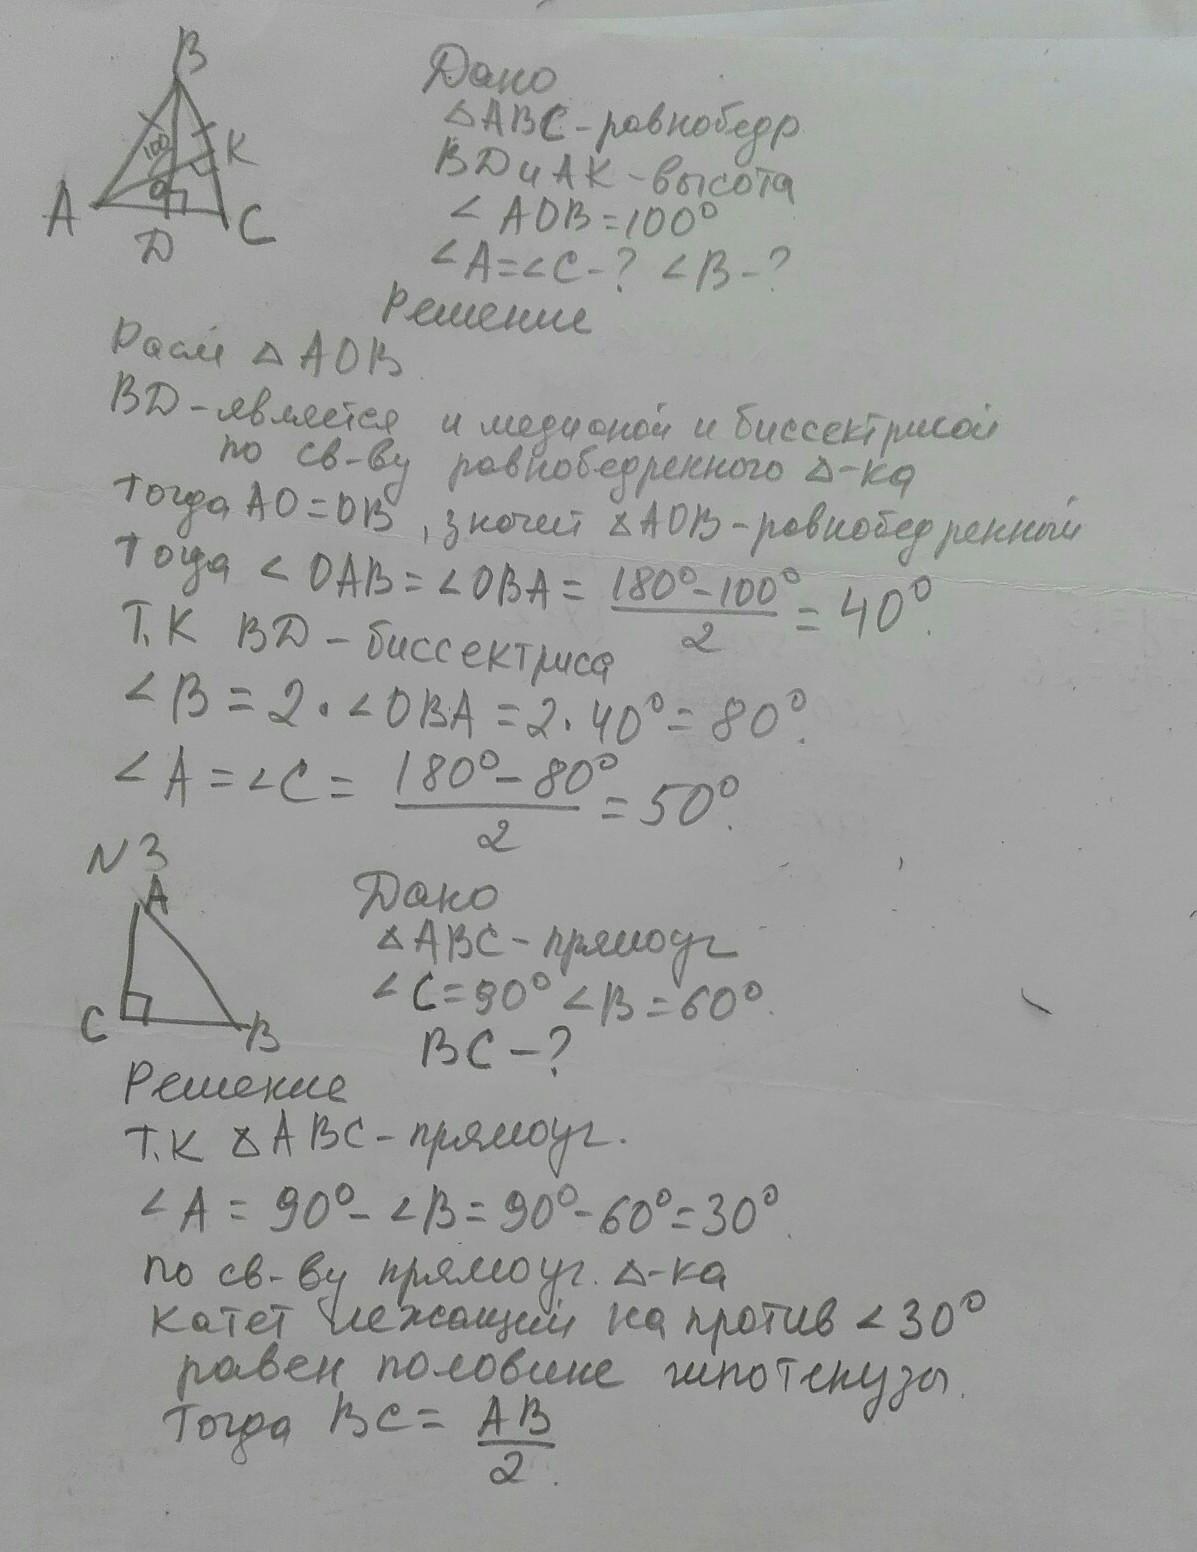 B
100
K
A
O
C
D
Дано
△ABC - равнобедр
BD и AK - высота
∠ AOB = 100°
∠A = ∠C - ? ∠B - ?
Решение
Расм △ AOB
BD - является и медианой и биссектрисой
по св-ву равнобедренного △-ка
Тогда AO = OB, значит △AOB - равнобедренный
Тогда ∠ OAB = ∠OBA = (180° - 100°)/2 = 40°.
Т.К BD - биссектриса
∠B = 2 · ∠OBA = 2 · 40° = 80°.
∠A = ∠C = (180° - 80°)/2 = 50°.
N 3
A
C
B
Дано
△ABC - прямоуг
∠C = 90° ∠B = 60°.
BC - ?
Решение
Т.К △ABC - прямоуг.
∠A = 90° - ∠B = 90° - 60° = 30°.
по св-ву прямоуг. △-ка
катет лежащий на против ∠30°
равен половине гипотенузы.
Тогда BC = AB/2.